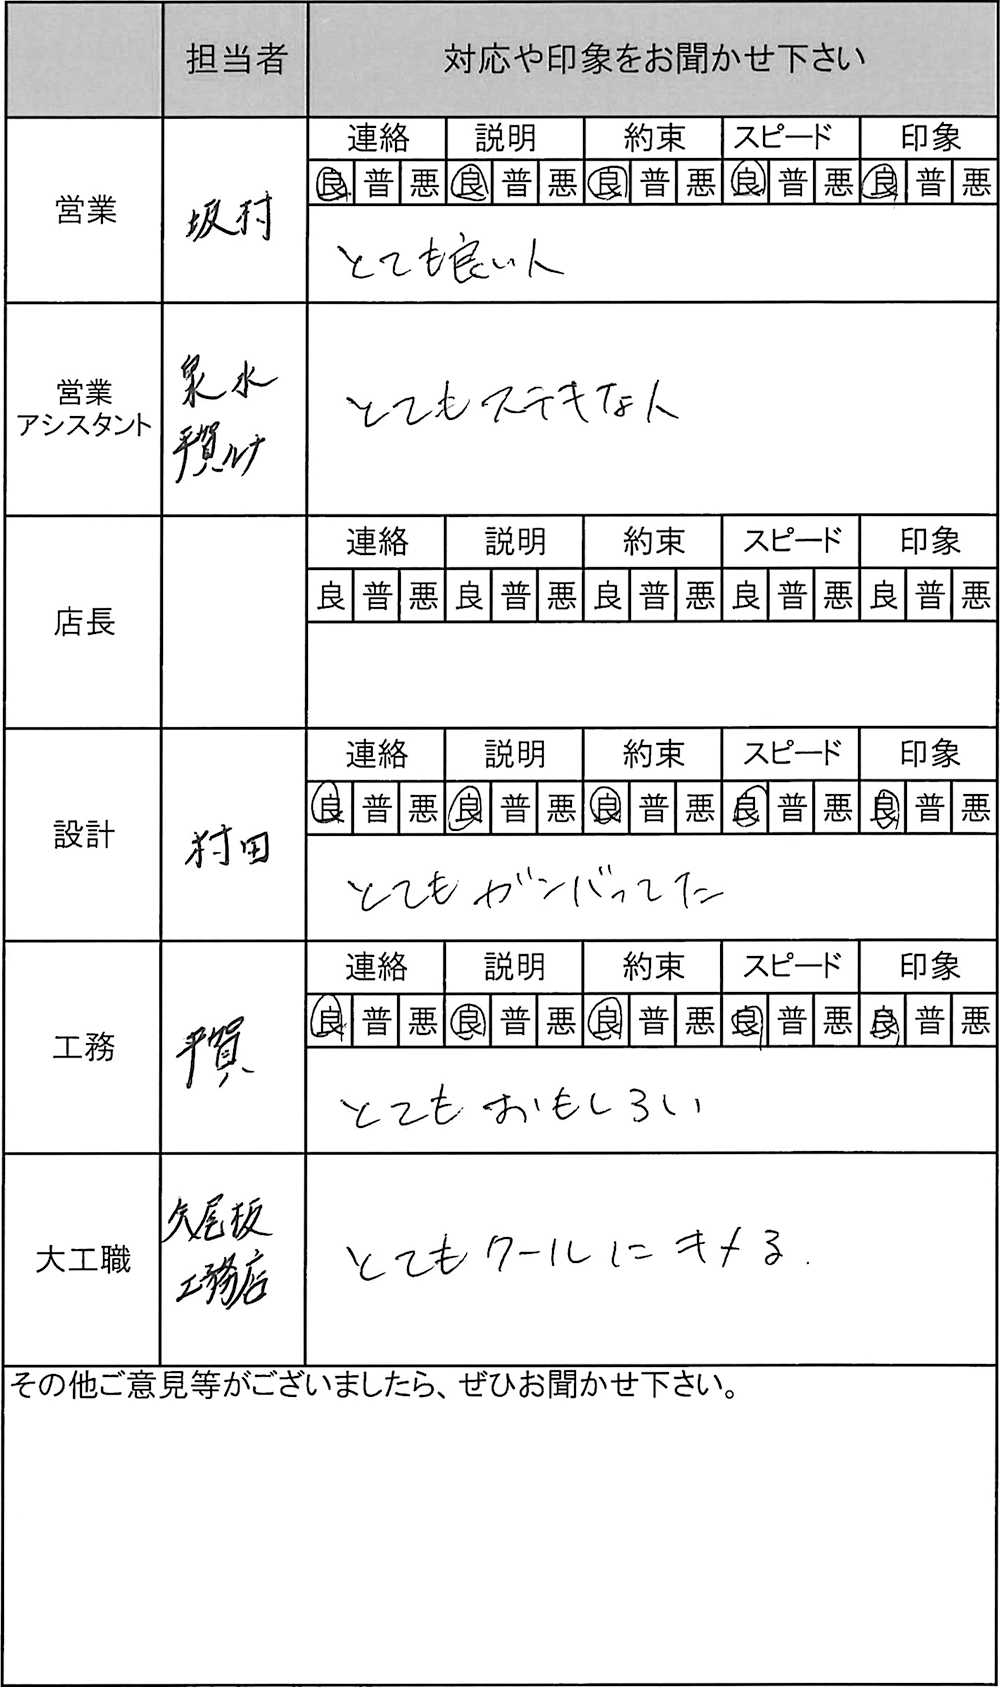 担当者 対応や印象をお聞かせ下さい
営業 坂村
連絡 説明 約束 スピード 印象
良 普 悪 良 普 悪 良 普 悪 良 普 悪 良 普 悪
とても良い人
営業
アシスタント
泉水
平賀ルナ
とてもステキな人
店長
連絡 説明 約束 スピード 印象
良 普 悪 良 普 悪 良 普 悪 良 普 悪 良 普 悪
設計 村田
連絡 説明 約束 スピード 印象
良 普 悪 良 普 悪 良 普 悪 良 普 悪 良 普 悪
とてもガンバってた
工務 平賀
連絡 説明 約束 スピード 印象
良 普 悪 良 普 悪 良 普 悪 良 普 悪 良 普 悪
とてもおもしろい
大工職
矢尾板
工務店
とてもクールにキメる.
その他ご意見等がございましたら、ぜひお聞かせ下さい。